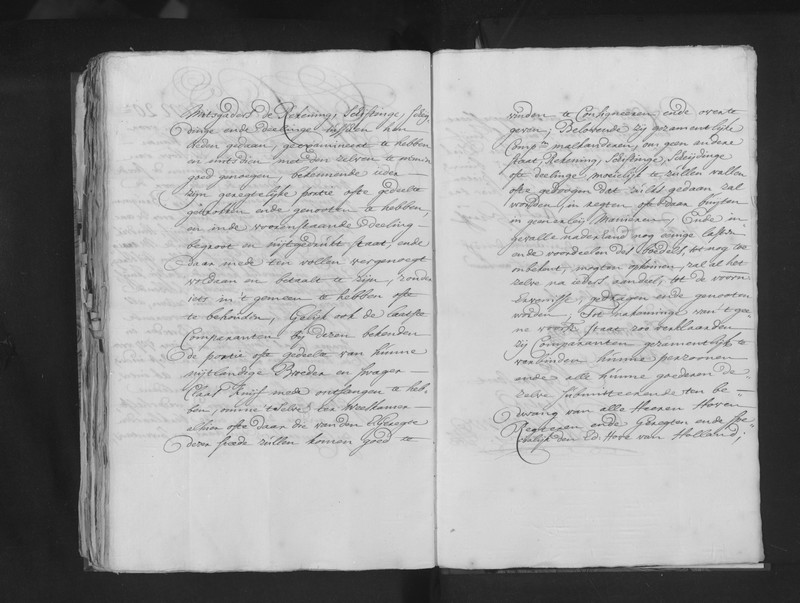 Matsgaders de Rekening, Schiftinge, Schey
dinge ende Deelinge tusschen hen
lieden gedaan, geexamineert te hebben
en mitsdien me den zelven te nemen
goed genoegen, bekennende ieder
zijn geregtelijke portie ofte gedeelte
getrokken ende genooten te hebben,
en inde voorenstaande deeling
begroot en uijtgedrukt staat, ende
daar mede ten vollen vergenoegt
voldaan en betaalt te zijn, zonder
iets in 't gemeen te hebben ofte
te behouden, Gelijk ook de laatste
Comparanten bij dezen bekenden
de portie ofte gedeelte van hunne
uijtlandige Broeder en swager
Claas Kuijf mede ontfangen te heb
ben, omme 't selve ter Weeskamer
alhier ofte daar die van den Geregte
dezer stede zullen komen goed te
vinden te Consigneeren ende over te
geven, Belovende zij gezamentlijke
Comp.ten malkanderen, om geen andere
staat Rekening, Schiftinge, Scheijdinge
ofte deelinge moeijelijk te zullen vallen
ofte gedoogen dat zulks gedaan zal
worden, in regten ofte daar buijten
in geenerleij Manieren, Ende in
gevalle naderhand nog eenige lasten
ende voordeelen des boedels, tot nog toe
onbekent, mogten opkomen, zal al het
zelve na ieders aandeel, tot de voorn.
erfenisse, gedragen ende genooten
worden, Tot nakominge van 't gee
ne voorsz. staat, zoo verklaarden
zij Comparanten gezamentlijk te
verbinden hunne perzoonen
ende alle hunne goederen de
zelve submitteerende ten be
dwang van alle Heeren Hoven
Regteren ende Geregten ende spe
cialijk den Ed. Hove van Holland;